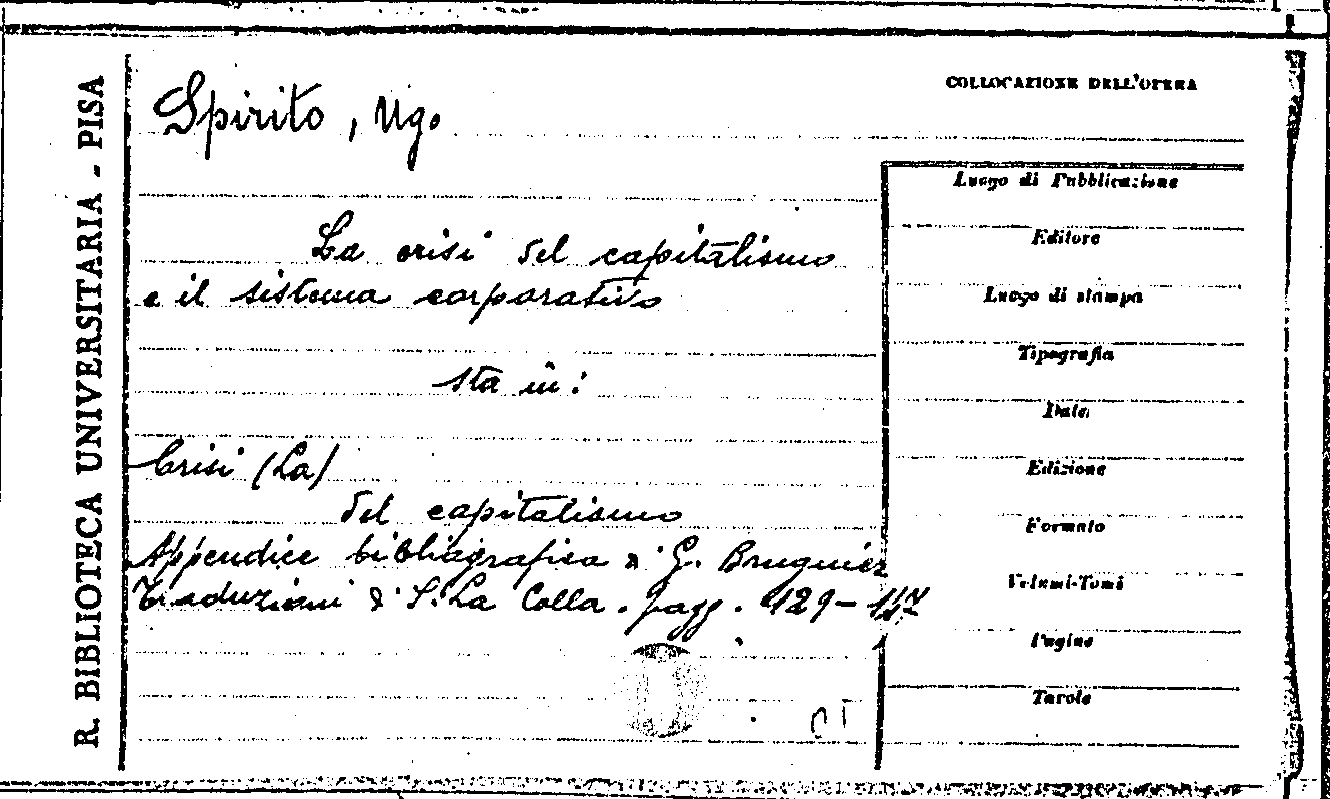 R. BIBLIOTECA UNIVERSITARIA - PISA
COLLOCAZIONE DELL'OPERA
Spirito, Ugo
La crisi del capitalismo
e il sistema corporativo
sta in:
Crisi (La)
del capitalismo
Appendice bibliografica di G. Bruguier
Traduzioni di S. La Colla. pagg. 129-
Luogo di Pubblicazione
Editore
Luogo di stampa
Tipografia
Data
Edizione
Formato
Volumi-Tomi
Pagine
Tavole